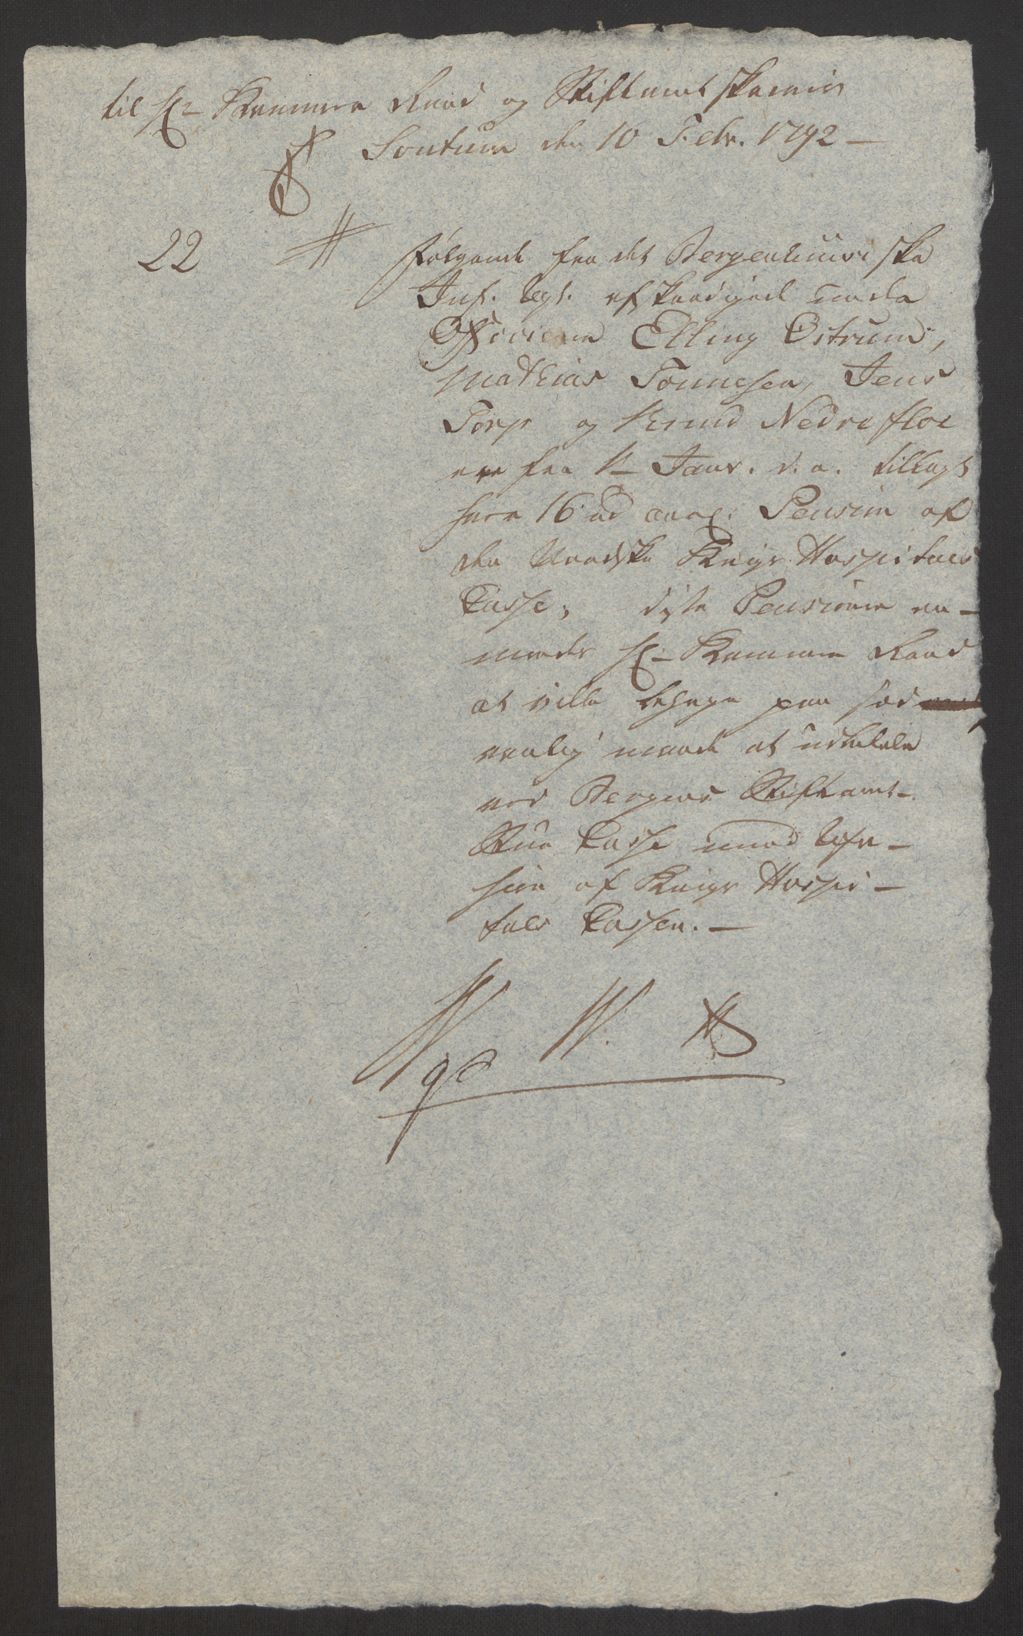 til H:r Kammer Raad og Stiftamtskriver
Sontum den 10 Febr. 1792 –
22 Følgende fra det Bergenhuusiske
Inf. Regt. afskeedigede Under
Officierer Elling Ostrum,
Mathias Tønnesen, Jens
Torp og Knud Nedrefloe
ere fra 1te Janr. d. a. tillagt
hver 16 rd aarl: Pension af
den Norske Krigs Hospitals
Casse, disse Pensioner an-
modes H:r Kammer Raad
at ville behage paa sæd
vanlig maade at udbetale
ved Bergens Stiftamt-
Stue Casse imod Refu-
sion af Krigs Hospi-
tals Cassen. –